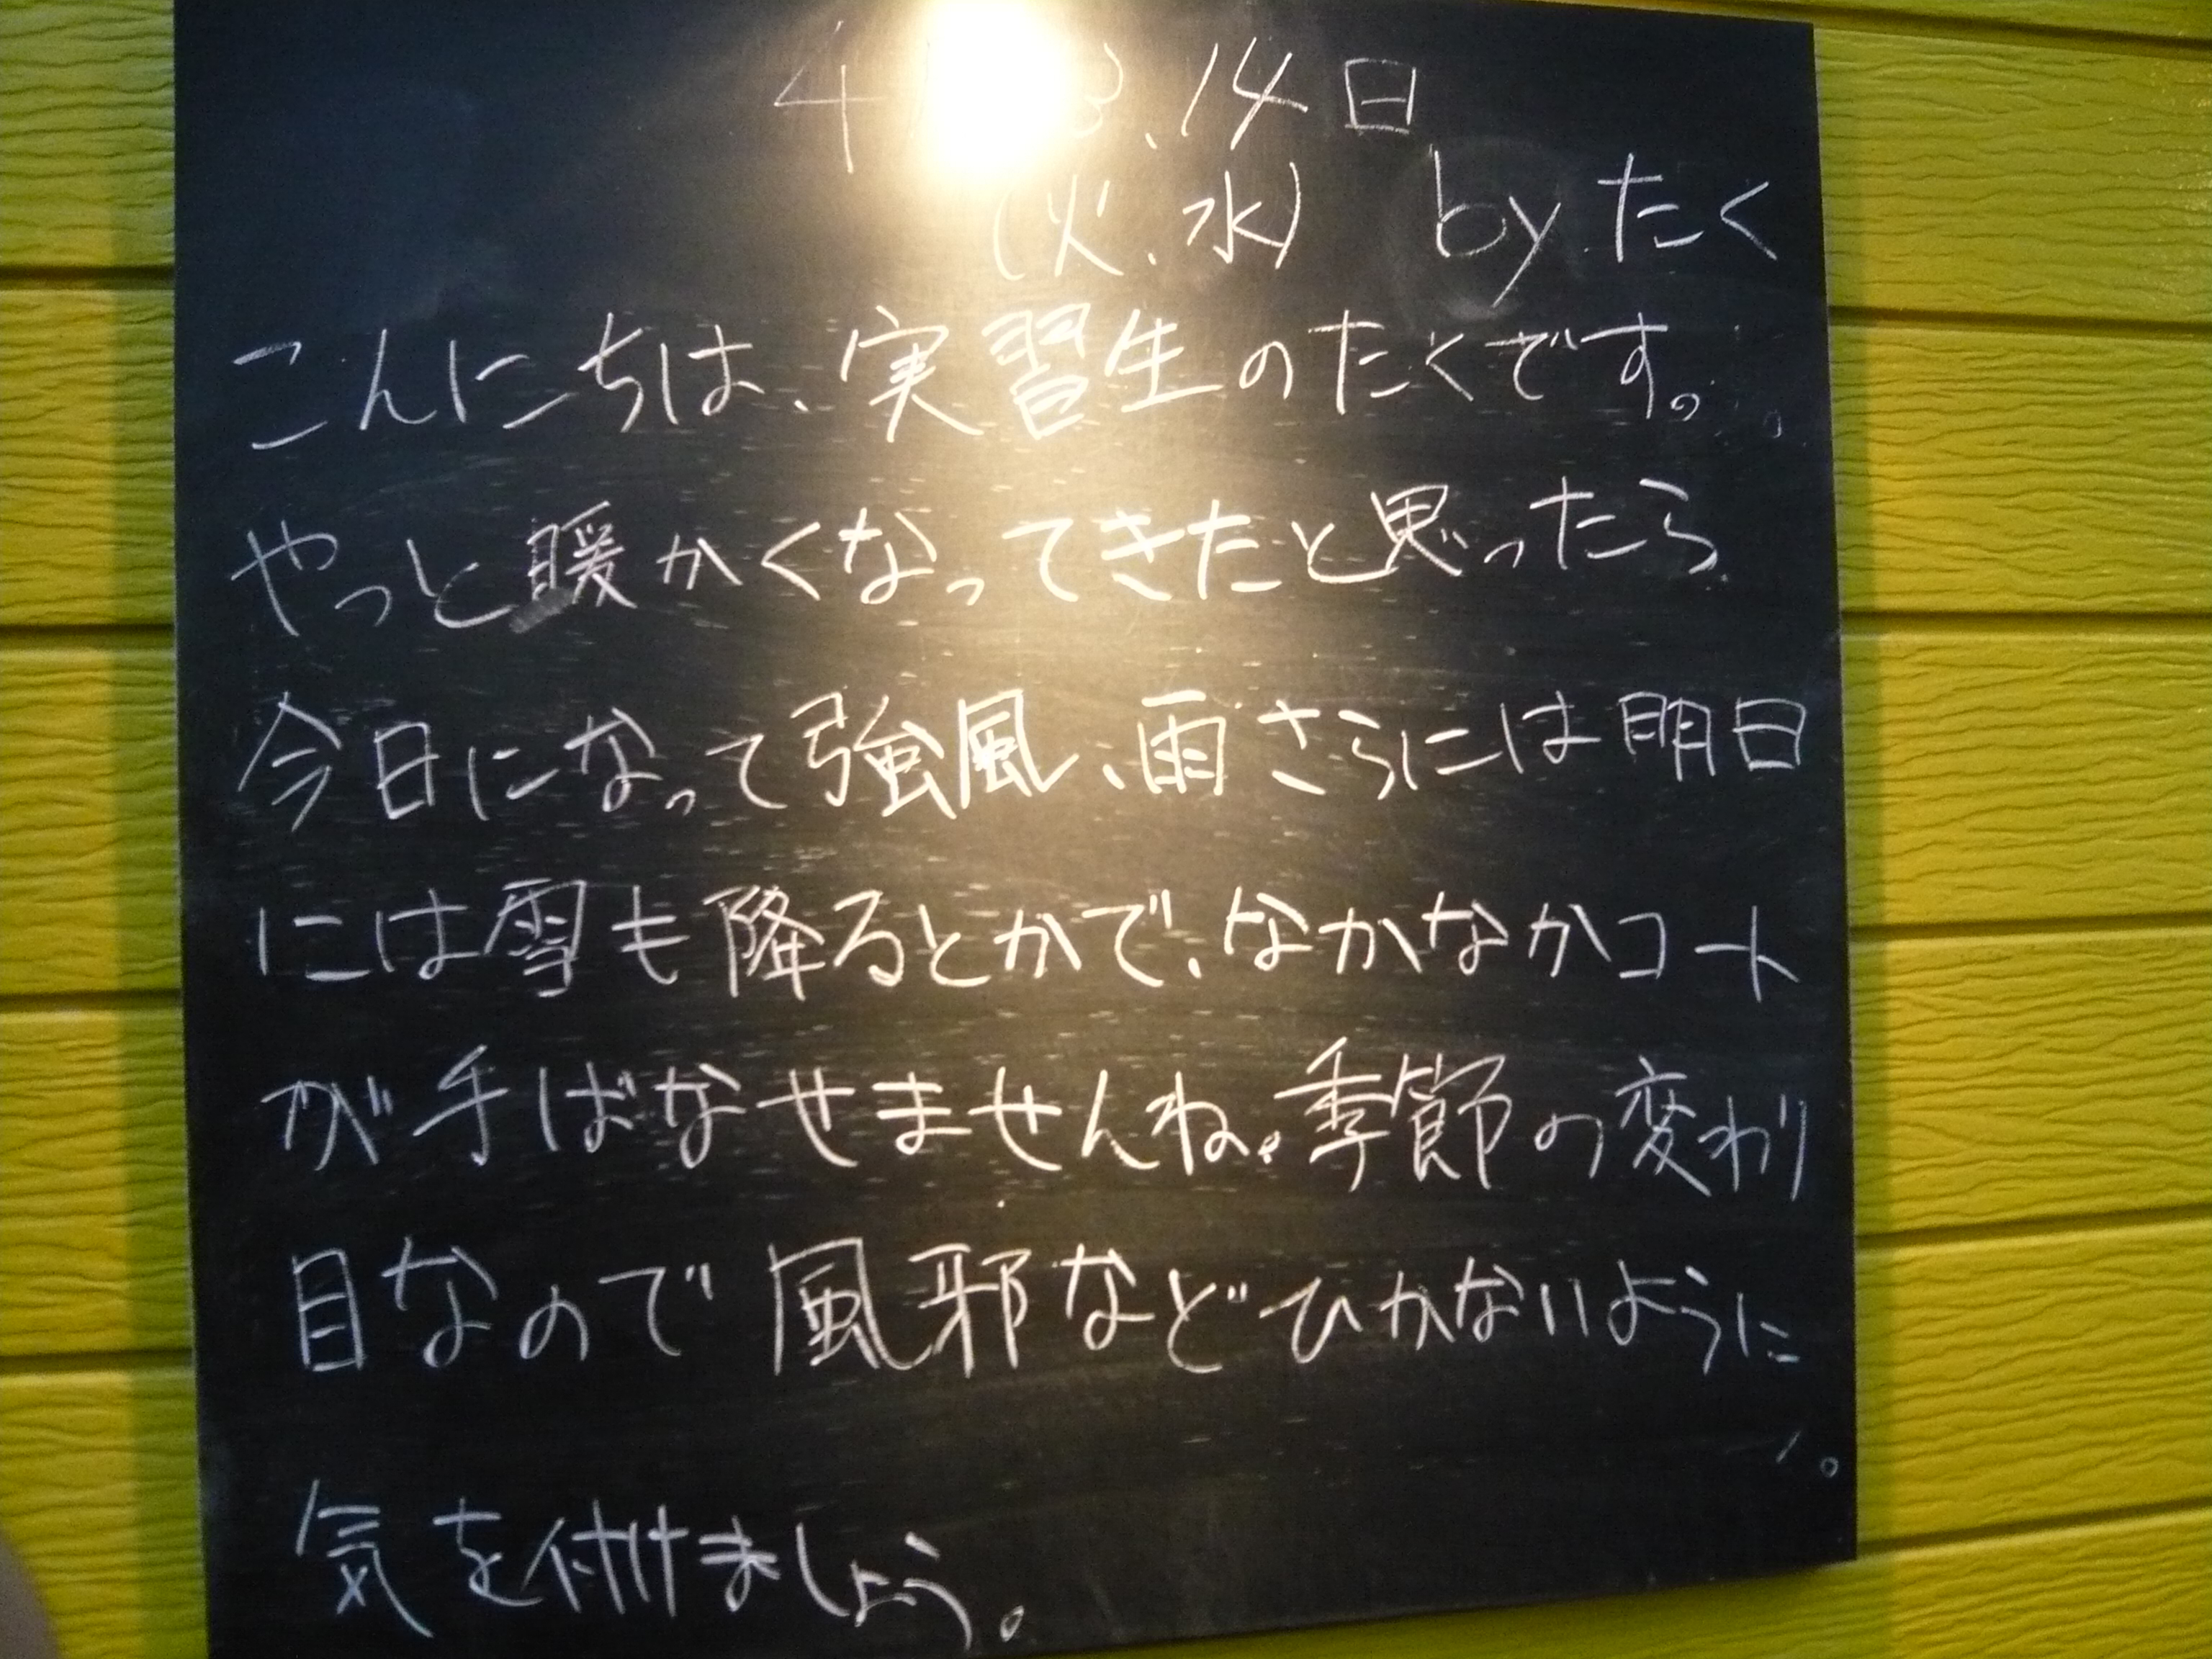 4 3、14日
(火、水) by たく
こんにちは、実習生のたくです。
やっと暖かくなってきたと思ったら
今日になって強風、雨さらには明日
には雪も降るとかで、なかなかコート
が手ばなせませんね。季節の変わり
目なので風邪などひかないように
気を付けましょう。